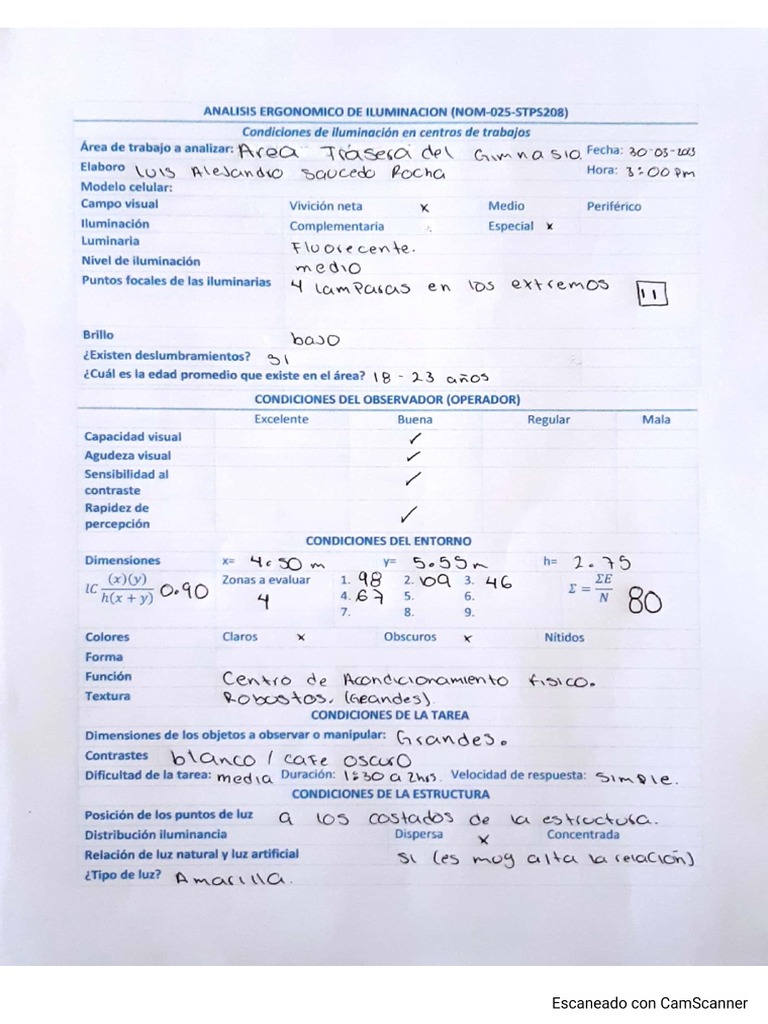 ANALISIS ERGONOMICO DE ILUMINACION (NOM-025-STPS208)
Condiciones de iluminación en centros de trabajos
Área de trabajo a analizar: Area Trasera del Gimnasio. Fecha: 30-03-2023
Elaboro Luis Alejandro Saucedo Rocha Hora: 3:00 pm
Modelo celular:
Campo visual Vivición neta x Medio Periférico
Iluminación Complementaria Especial x
Luminaria Fluorecente.
Nivel de iluminación medio
Puntos focales de las iluminarias 4 lamparas en los extremos
Brillo bajo
¿Existen deslumbramientos? si
¿Cuál es la edad promedio que existe en el área? 18 - 23 años
CONDICIONES DEL OBSERVADOR (OPERADOR)
Excelente Buena Regular Mala
Capacidad visual ✓
Agudeza visual ✓
Sensibilidad al contraste ✓
Rapidez de percepción ✓
CONDICIONES DEL ENTORNO
Dimensiones x= 4.50 m y= 5.55m h= 2.75
IC (x)(y) / h(x + y) 0.90 Zonas a evaluar 4 1. 98 2. 109 3. 46
4. 67 5. 6.
7. 8. 9.
Σ = ΣE / N 80
Colores Claros x Obscuros x Nítidos
Forma
Función Centro de Acondicionamiento fisico.
Textura Robostos. (Grandes)
CONDICIONES DE LA TAREA
Dimensiones de los objetos a observar o manipular: Grandes.
Contrastes blanco / cafe oscuro
Dificultad de la tarea: media Duración: 1:30 a 2hrs. Velocidad de respuesta: simple.
CONDICIONES DE LA ESTRUCTURA
Posición de los puntos de luz a los costados de la estructura.
Distribución iluminancia Dispersa x Concentrada
Relación de luz natural y luz artificial Si (es muy alta la relación)
¿Tipo de luz? Amarilla.
Escaneado con CamScanner